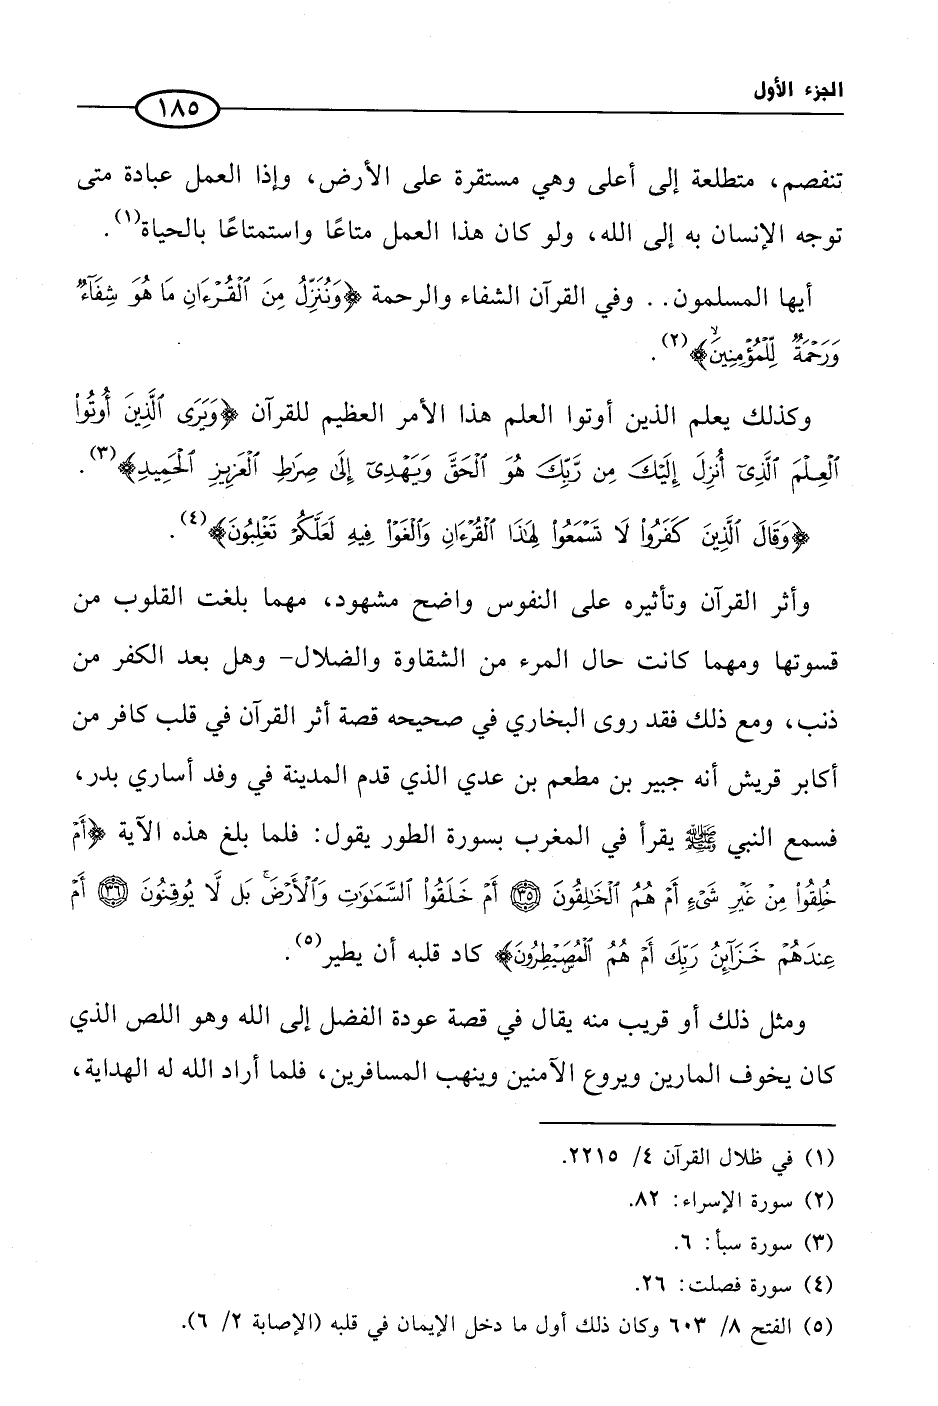 الجزء الأول
١٨٥
تنفصم، متطلعة إلى أعلى وهي مستقرة على الأرض، وإذا العمل عبادة متى
توجه الإنسان به إلى الله، ولو كان هذا العمل متاعًا واستمتاعًا بالحياة(١).
أيها المسلمون.. وفي القرآن الشفاء والرحمة ﴿وَنُنَزِّلُ مِنَ ٱلْقُرْءَانِ مَا هُوَ شِفَآءٌ
وَرَحْمَةٌ لِّلْمُؤْمِنِينَ ۙ﴾(٢).
وكذلك يعلم الذين أوتوا العلم هذا الأمر العظيم للقرآن ﴿وَيَرَى ٱلَّذِينَ أُوتُوا۟
ٱلْعِلْمَ ٱلَّذِىٓ أُنزِلَ إِلَيْكَ مِن رَّبِّكَ هُوَ ٱلْحَقَّ وَيَهْدِىٓ إِلَىٰ صِرَٰطِ ٱلْعَزِيزِ ٱلْحَمِيدِ﴾(٣).
﴿وَقَالَ ٱلَّذِينَ كَفَرُوا۟ لَا تَسْمَعُوا۟ لِهَٰذَا ٱلْقُرْءَانِ وَٱلْغَوْا۟ فِيهِ لَعَلَّكُمْ تَغْلِبُونَ﴾(٤).
وأثر القرآن وتأثيره على النفوس واضح مشهود، مهما بلغت القلوب من
قسوتها ومهما كانت حال المرء من الشقاوة والضلال- وهل بعد الكفر من
ذنب، ومع ذلك فقد روى البخاري في صحيحه قصة أثر القرآن في قلب كافر من
أكابر قريش أنه جبير بن مطعم بن عدي الذي قدم المدينة في وفد أساري بدر،
فسمع النبي ﷺ يقرأ في المغرب بسورة الطور يقول: فلما بلغ هذه الآية ﴿أَمْ
خُلِقُوا۟ مِنْ غَيْرِ شَىْءٍ أَمْ هُمُ ٱلْخَٰلِقُونَ ٣٥ أَمْ خَلَقُوا۟ ٱلسَّمَٰوَٰتِ وَٱلْأَرْضَ ۚ بَل لَّا يُوقِنُونَ ٣٦ أَمْ
عِندَهُمْ خَزَآئِنُ رَبِّكَ أَمْ هُمُ ٱلْمُصَۣيْطِرُونَ﴾ كاد قلبه أن يطير(٥).
ومثل ذلك أو قريب منه يقال في قصة عودة الفضل إلى الله وهو اللص الذي
كان يخوف المارين ويروع الآمنين وينهب المسافرين، فلما أراد الله له الهداية،
(١) في ظلال القرآن ٤/ ٢٢١٥.
(٢) سورة الإسراء: ٨٢.
(٣) سورة سبأ: ٦.
(٤) سورة فصلت: ٢٦.
(٥) الفتح ٨/ ٦٠٣ وكان ذلك أول ما دخل الإيمان في قلبه (الإصابة ٢/ ٦).